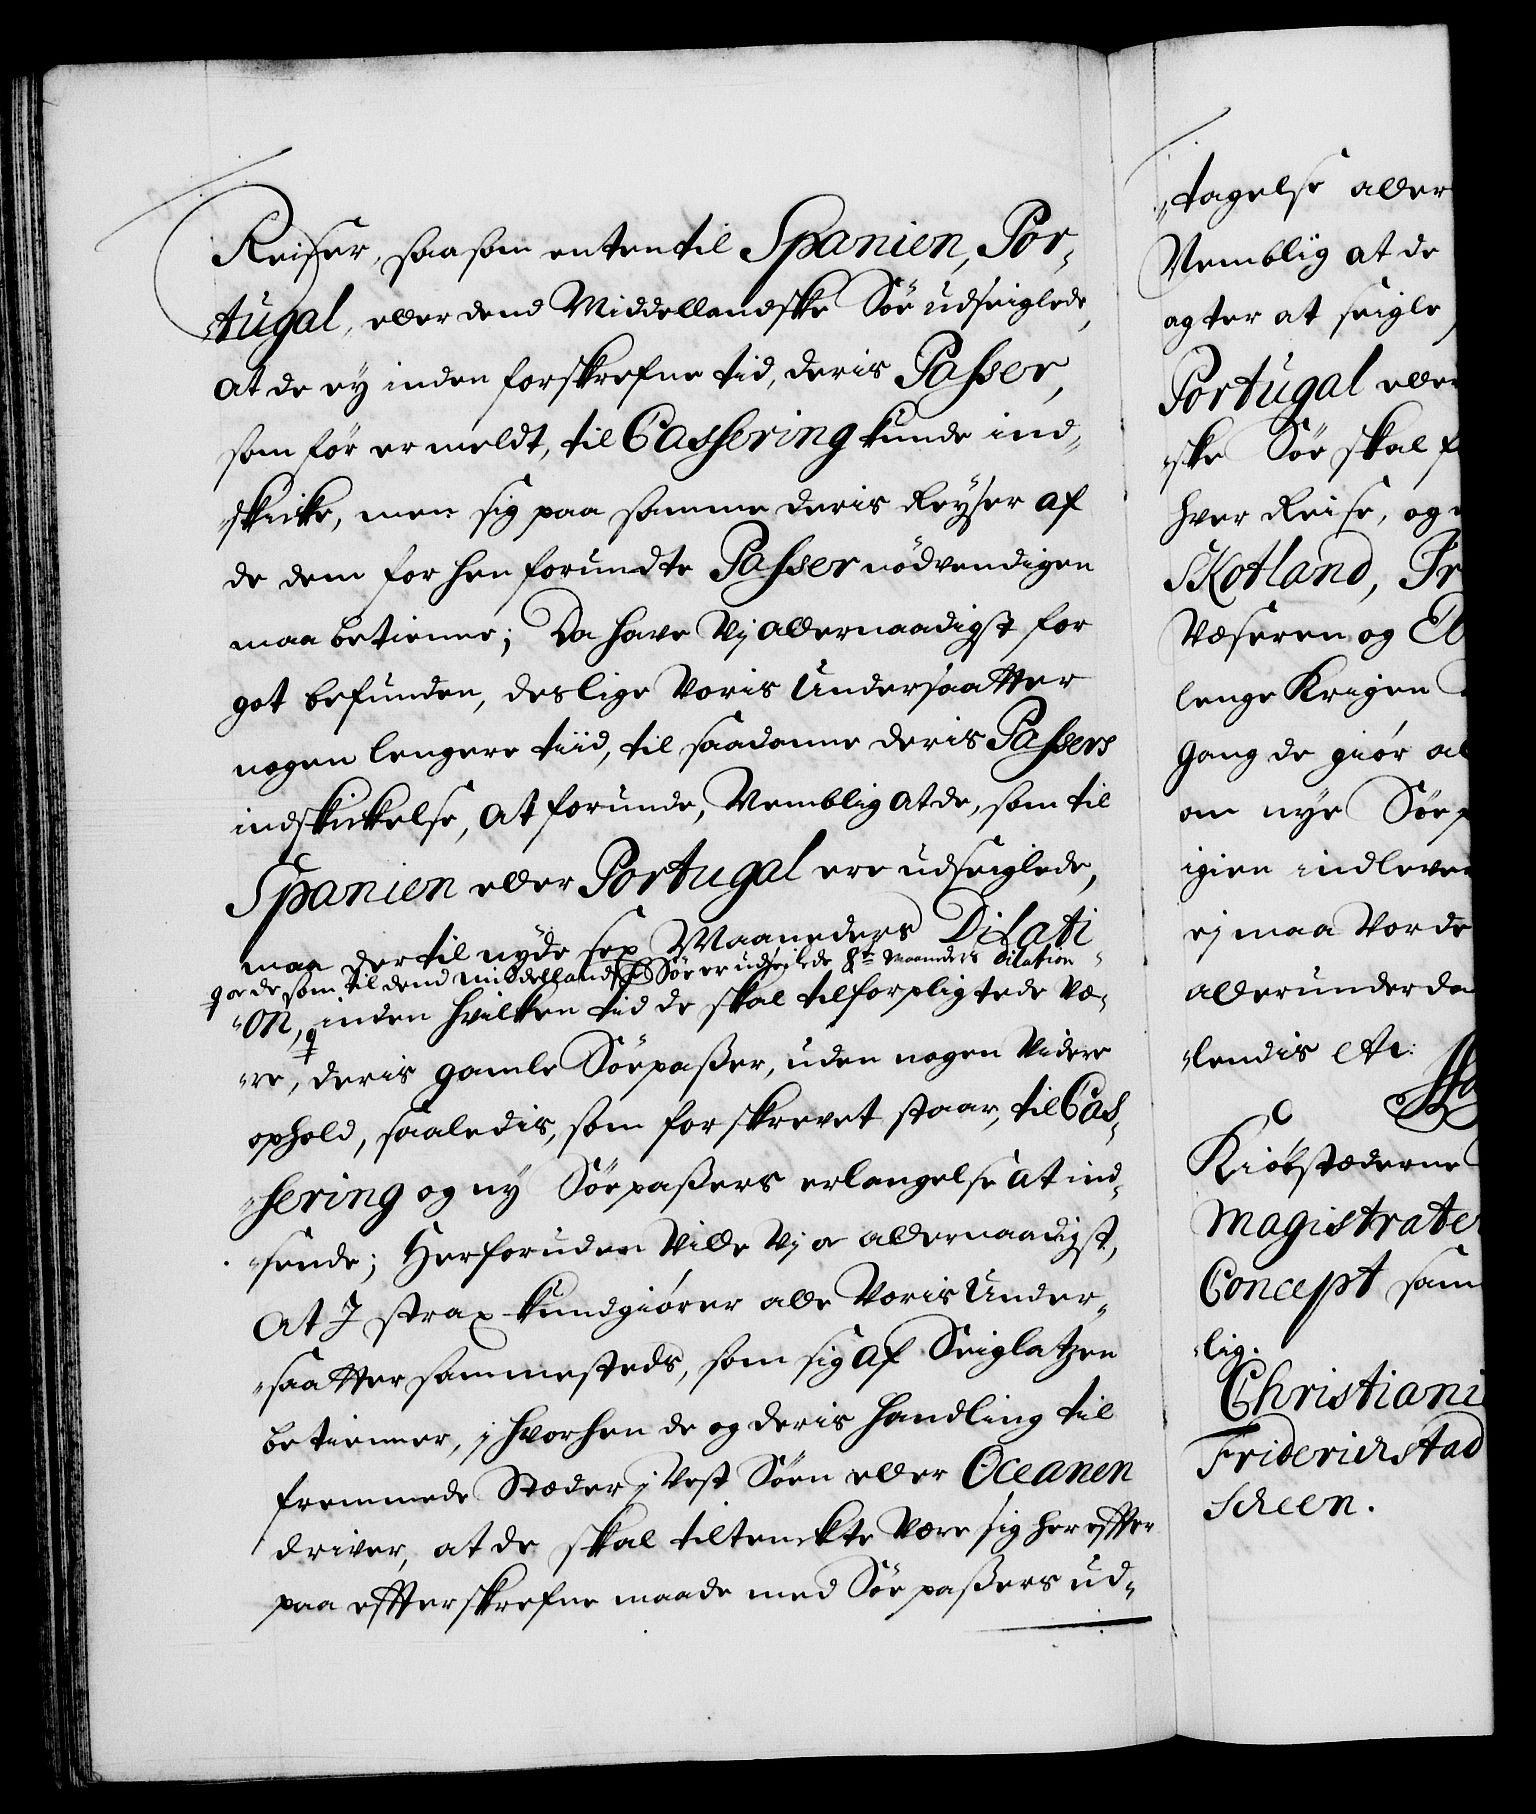 Reiser, saasom enten til Spanien, Por-
tugal, eller dend Middellandske Söe udseiglede,
at de ey inden forskrefne tid, deris Passer,
som för er meldt, til Cassering kunde ind-
skicke, men sig paa samme deris Reyser af
de dem forhen forundte Passer nödvendigen
maa betienne; Da have Vj allernaadigst for
got befunden, deslige Voris Undersaatter
nogen lengere tiid, til saadanne deris Passers
indskickelse, at forunde, Nemblig at de, som til
Spanien eller Portugal ere udseiglede,
maa dertil nyde sex Maaneders Dilati-
og de som til dend middellandske Söe er udseilede 8te Maaneders dilation
on, inden hvilken tid de skal tilforpligtede væ-
re, deris gamle Söepasser, uden nogen videre
ophold, saaledis, som forskrevet staar, til Cas-
sering og ny Söepassers erlangelse at ind-
sende; Herforuden ville Vj og allernaadigst,
at I strax kundgiører alle Voris Under-
saatter sammesteds, som sig af Seiglatzen
betienner, i hvorhen de og deris handling til
fremmede Stæder i Vest Söen eller Oceanen
driver, at de skal tiltenckte være sig herefter
paa efterskrefne maade med Söepassers ud-
tagelse aller
Nemblig at de
agter at seigle
Portugal eller
ske Söe skal f
hver Reise, og
Skotland, Fr
Væseren og El
lenge Krigen
Gang de giør al
om nye Söep
igien indlever
ej maa vorde
allerunderda
lendis etc:
Kiøbstæderne
Magistrate
Concept sam
lig.
Christiani
Friderichstad
Scheen.